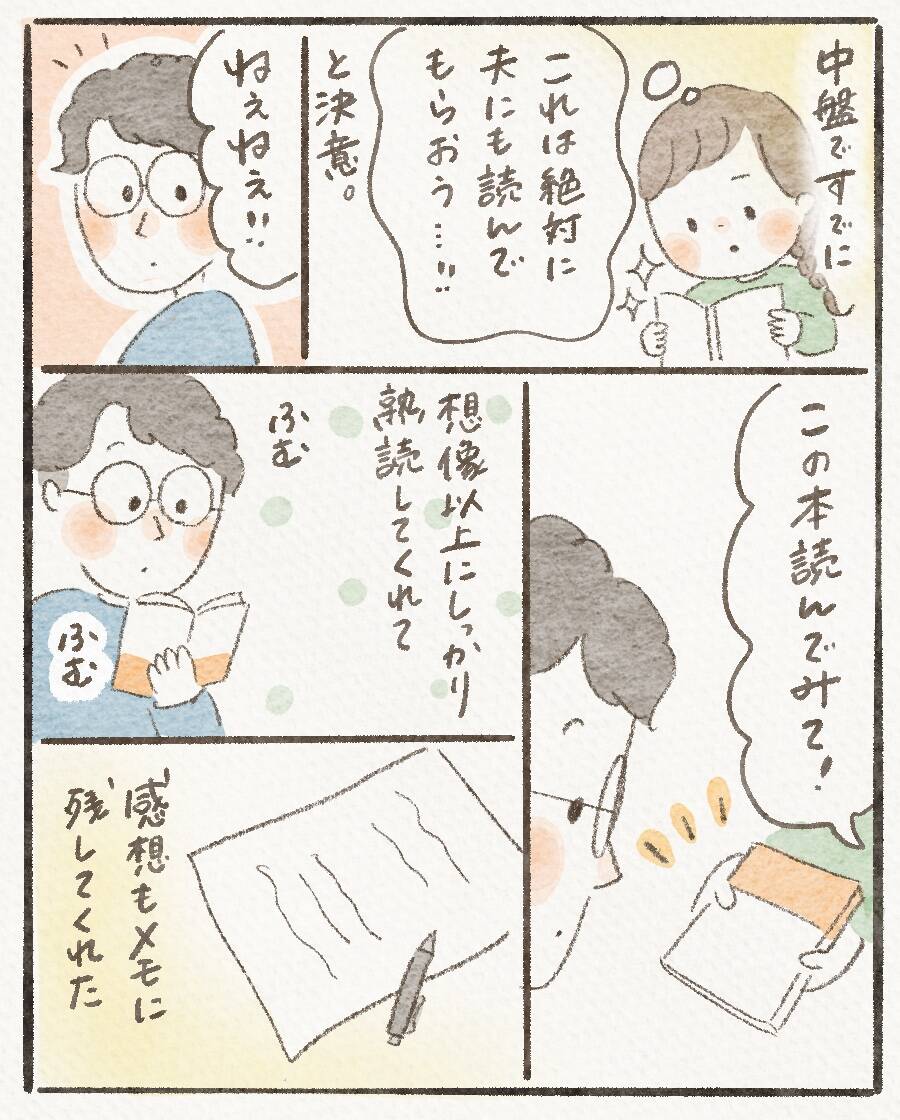 中盤ですでに
これは絶対に
夫にも読んで
もらおう…!!
と決意。
ねぇねぇ!!
この本読んでみて!
想像以上にしっかり
熟読してくれて
ふむ
ふむ
感想もメモに
残してくれた